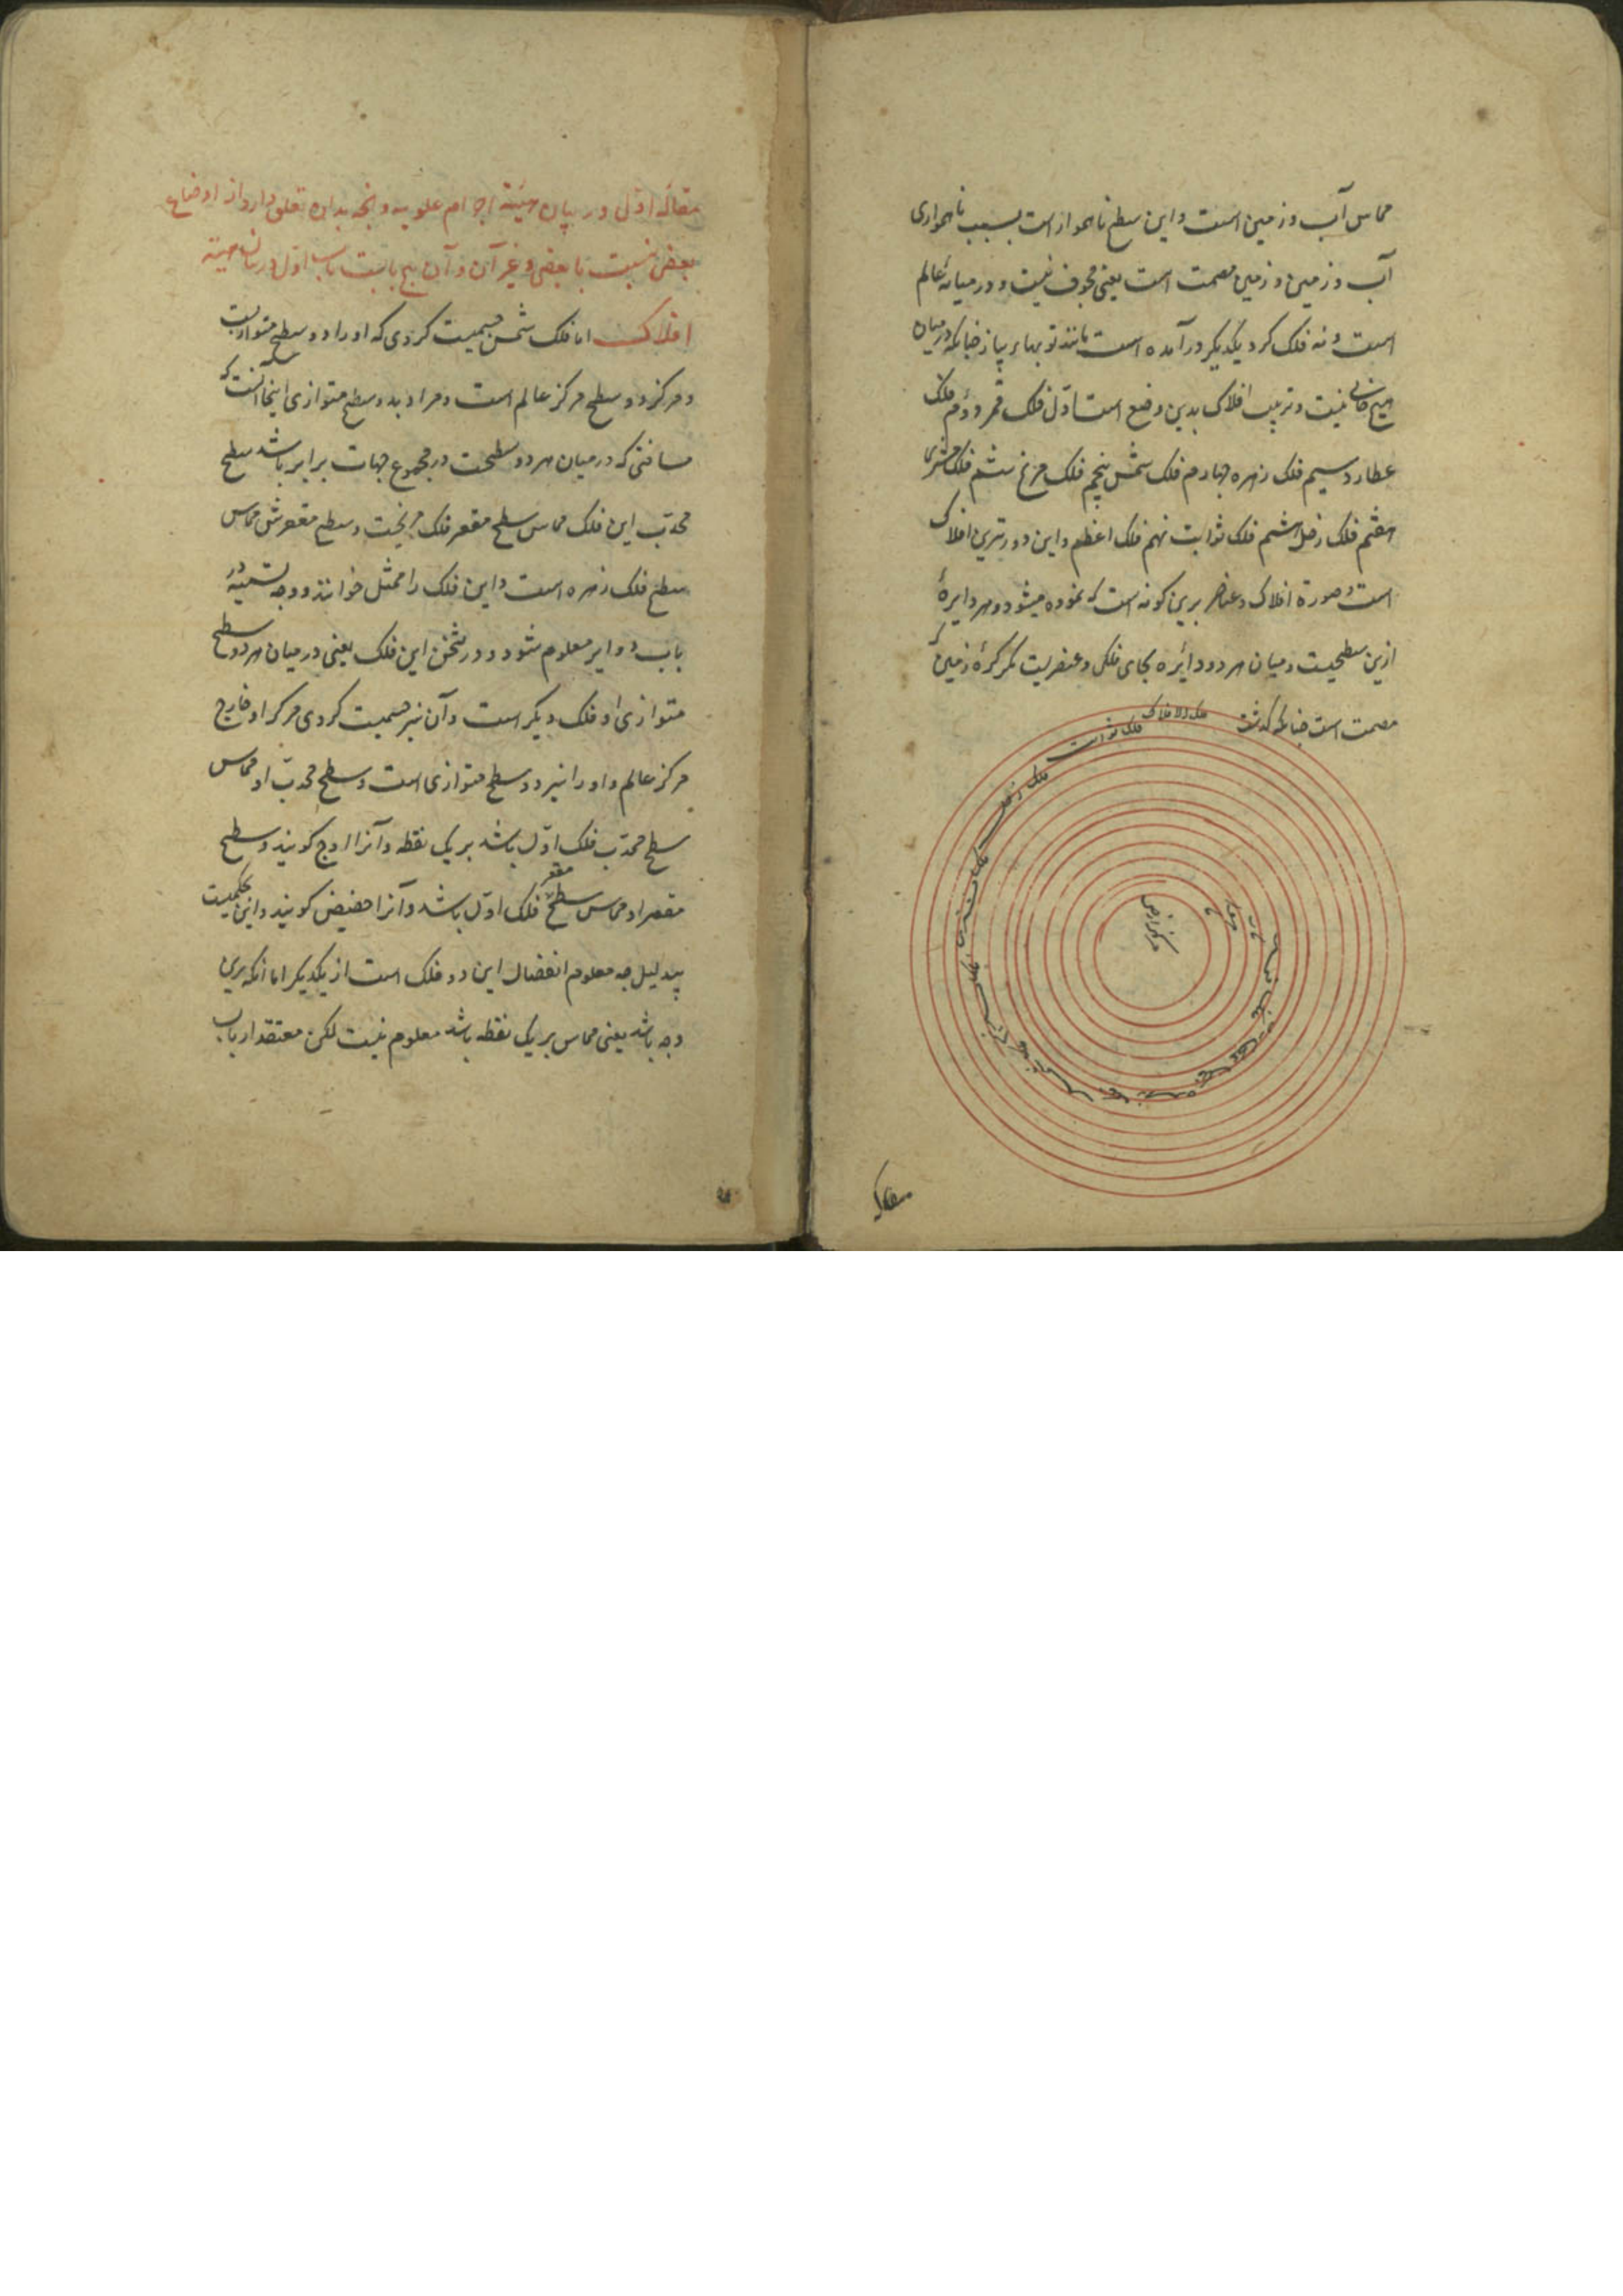 مماس آب و زمین است و این سطح ناهموار است بسبب ناهمواری
آب و زمین و زمین مصمت است یعنی مجوف نیست و در میانه عالم
است و نه فلک کرد یکدیکر درآمده است مانند تویهاء پیاز چنانکه در میان
هیچ خالی نیست و ترتیب افلاک بدین وضع است اول فلک قمر دوم فلک
عطارد سیم فلک زهره چهارم فلک شمس پنجم فلک مریخ ششم فلک مشتری
هفتم فلک زحل هشتم فلک ثوابت نهم فلک اعظم و این دورترین افلاک
است و صورة افلاک و عناصر برین کونه است که نموده میشود و هر دایرهٔ
ازین سطحیست و میان هر دو دائره بجای فلکی و عنصریست مکر کرهٔ زمین که
مصمت است چنانکه کذشت
فلک الافلاک
فلک ثوابت
فلک زحل
فلک مشتری
فلک مریخ
فلک شمس
فلک زهره
فلک عطارد
فلک قمر
مرکز ارض
مقاله
مقالهٔ اول در بیان هیئة اجرام علویه و آنچه بدان تعلق دارد از اوضاع
بعضی نسبت با بعضی و غیر آن و آن پنج بابست باب اول در بیان هیئة
افلاک اما فلک شمس جسمیست کروی که او را دو سطح متوازیست
و مرکز دو سطح مرکز عالم است و مراد بدو سطح متوازی اینجا آنست که
مسافتی که در میان هر دو سطحست در مجموع جهات برابر باشد سطح
محدب این فلک مماس سطح مقعر فلک مریخست و سطح مقعرش مماس
سطح فلک زهره است و این فلک را ممثل خوانند و وجه تسمیه در
باب دوایر معلوم شود و در ثخن این فلک یعنی در میان هر دو سطح
متوازی او فلک دیکر است و آن نیز جسمیست کروی مرکز او خارج
مرکز عالم و او را نیز دو سطح متوازی است و سطح محدب او مماس
سطح محدب فلک اول باشد بریک نقطه و آنرا اوج کویند و سطح
مقعر او مماس سطح مقعر فلک اول باشد و آنرا حضیض کویند و این حکمیست
بیدلیل چه معلوم انفصال این دو فلک است از یکدیکر اما آنکه برین
وجه باشد یعنی مماس بریک نقطه باشد معلوم نیست لکن معتقد ارباب